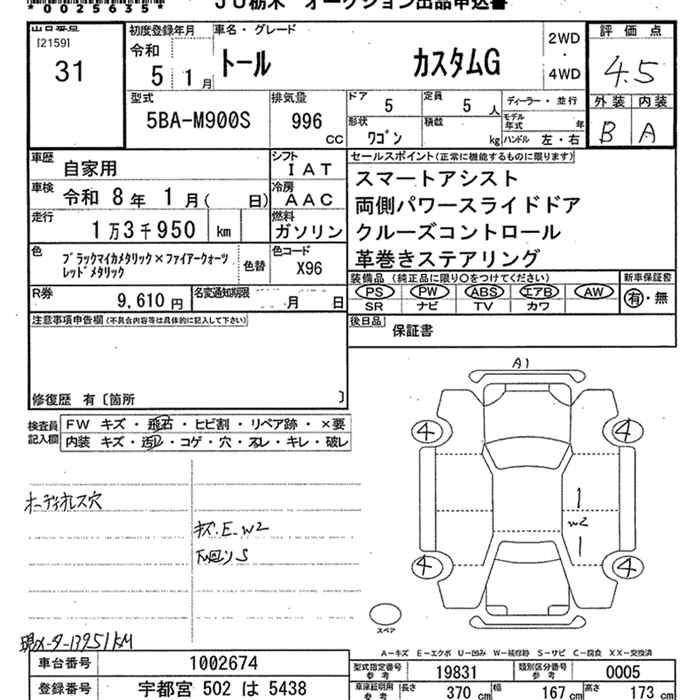 *0025635*
JU栃木 オークション出品申込書
出品番号
[2159]
31
初度登録年月
令和
5 1月
車名・グレード
トール カスタムG
2WD
・
4WD
評価点
4.5
外装 内装
B A
型式
5BA-M900S
排気量
996
CC
ドア
5
定員
5 人
ディーラー・並行
形状
ワゴン
積載
kg
モデル年式
年
ハンドル 左・右
車歴
自家用
シフト
IAT
車検
令和 8年 1月( 日)
冷房
AAC
走行
1万3千950 km
燃料
ガソリン
色
ブラックマイカメタリック×ファイアークォーツ
レッドメタリック
色替
色コード
X96
R券
9,610円
名変通知期限
月 日
セールスポイント(正常に機能するものに限ります)
スマートアシスト
両側パワースライドドア
クルーズコントロール
革巻きステアリング
装備品 (純正品に限り○をつけてください)
PS PW ABS エアB AW
SR ナビ TV カワ
新車保証書
有・無
後日品
保証書
注意事項申告欄(不具合内容等は具体的に記入して下さい)
修復歴 有〔箇所 〕
検査員
記入欄
FW キズ・飛石・ヒビ割・リペア跡・×要
内装 キズ・汚レ・コゲ・穴・スレ・キレ・破レ
オーディオレス穴
キズ.E.W2
下回りS
現メーター13951KM
A1
4
4
W2
4
4
スペア
A-キズ E-エクボ U-凹み W-補修跡 S-サビ C-腐食 XX-交換済
車台番号
1002674
登録番号
宇都宮 502 は 5438
型式指定番号
参考
19831
類別区分番号
参考
0005
車庫証明用
参考
長さ
370 cm
幅
167 cm
高さ
173 cm